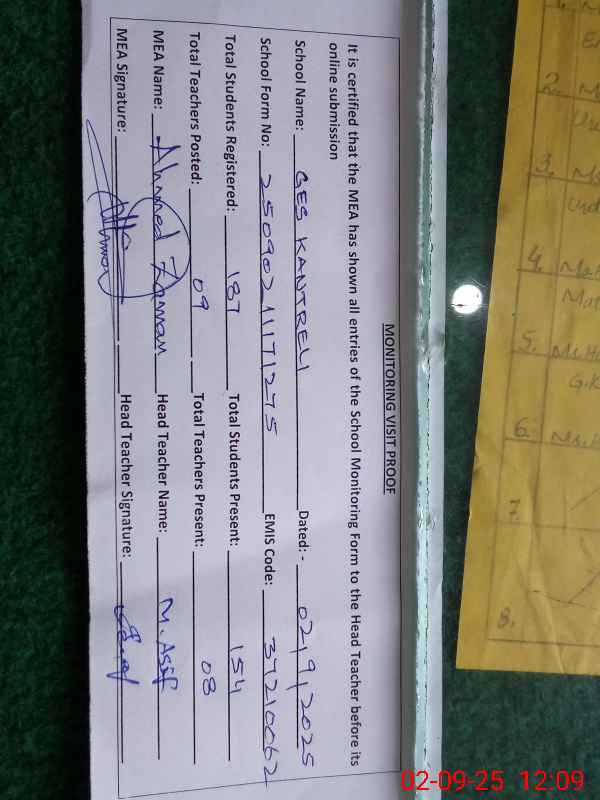 MONITORING VISIT PROOF
It is certified that the MEA has shown all entries of the School Monitoring Form to the Head Teacher before its
online submission
School Name: GES KANTRELI Dated: - 02/9/2025
School Form No: 25090211171275 EMIS Code: 37210062
Total Students Registered: 187 Total Students Present: 154
Total Teachers Posted: 09 Total Teachers Present: 08
MEA Name: Ahmed Zaman Head Teacher Name: M. Asif
MEA Signature: Head Teacher Signature:
2.
3.
4.
5.
G.K
6.
7.
8.
02-09-25 12:09